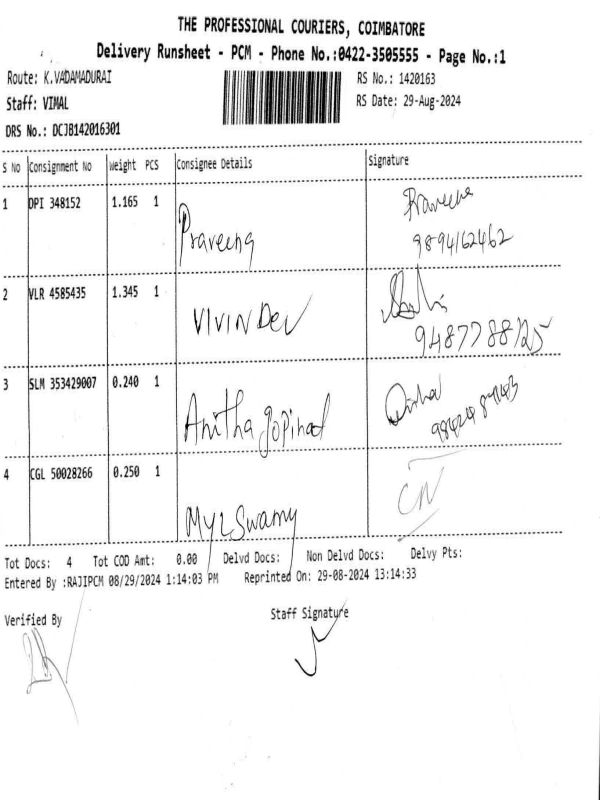 THE PROFESSIONAL COURIERS, COIMBATORE
Delivery Runsheet - PCM - Phone No.:0422-3505555 - Page No.:1
Route: K.VADAMADURAI
RS No.: 1420163
Staff: VIMAL
RS Date: 29-Aug-2024
DRS No.: DCJB142016301
S No Consignment No Weight PCS Consignee Details Signature
1 DPI 348152 1.165 1 Praveena Praveena
9894162462
2 VLR 4585435 1.345 1 VIVIN DEV
9487788725
3 SLM 353429007 0.240 1 Anitha gopinad
4 CGL 50028266 0.250 1 CN
Swamy
Tot Docs: 4 Tot COD Amt: 0.00 Delvd Docs: Non Delvd Docs: Delvy Pts:
Entered By :RAJIPCM 08/29/2024 1:14:03 PM Reprinted On: 29-08-2024 13:14:33
Verified By Staff Signature